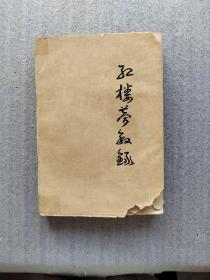 红楼梦叙录